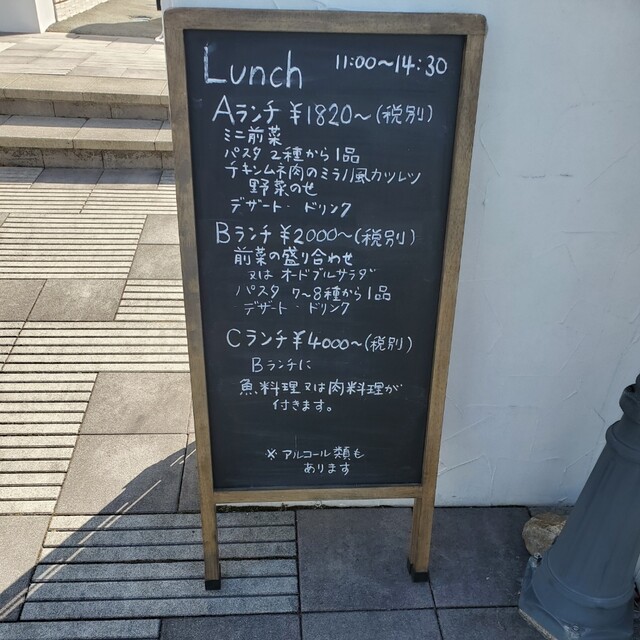 Lunch 11:00～14:30
Aランチ ¥1820～(税別)
ミニ前菜
パスタ 2種から1品
チキンムネ肉のミラノ風カツレツ
野菜のせ
デザート・ドリンク
Bランチ ¥2000～(税別)
前菜の盛り合わせ
又は オードブルサラダ
パスタ 7～8種から1品
デザート・ドリンク
Cランチ ¥4000～(税別)
Bランチに
魚料理又は肉料理が
付きます。
※アルコール類も
あります